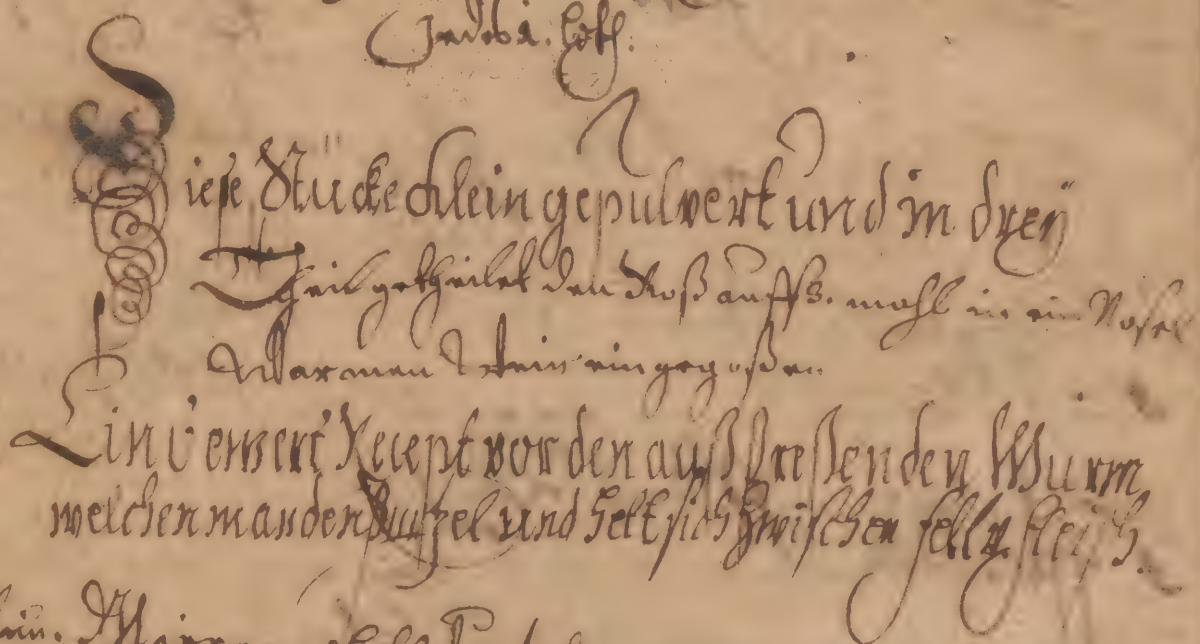 Jedes 2. Loth.
Diese Stücke klein gepulvert und in drey
Theil getheilet den Roß auff 3. mahl in ein Nösel
Warmen Wein eingegoßen
Ein bewert Recept vor den außfreßenden Wurm
welchen man den nennt und helt sich zwischen fell u. fleisch.